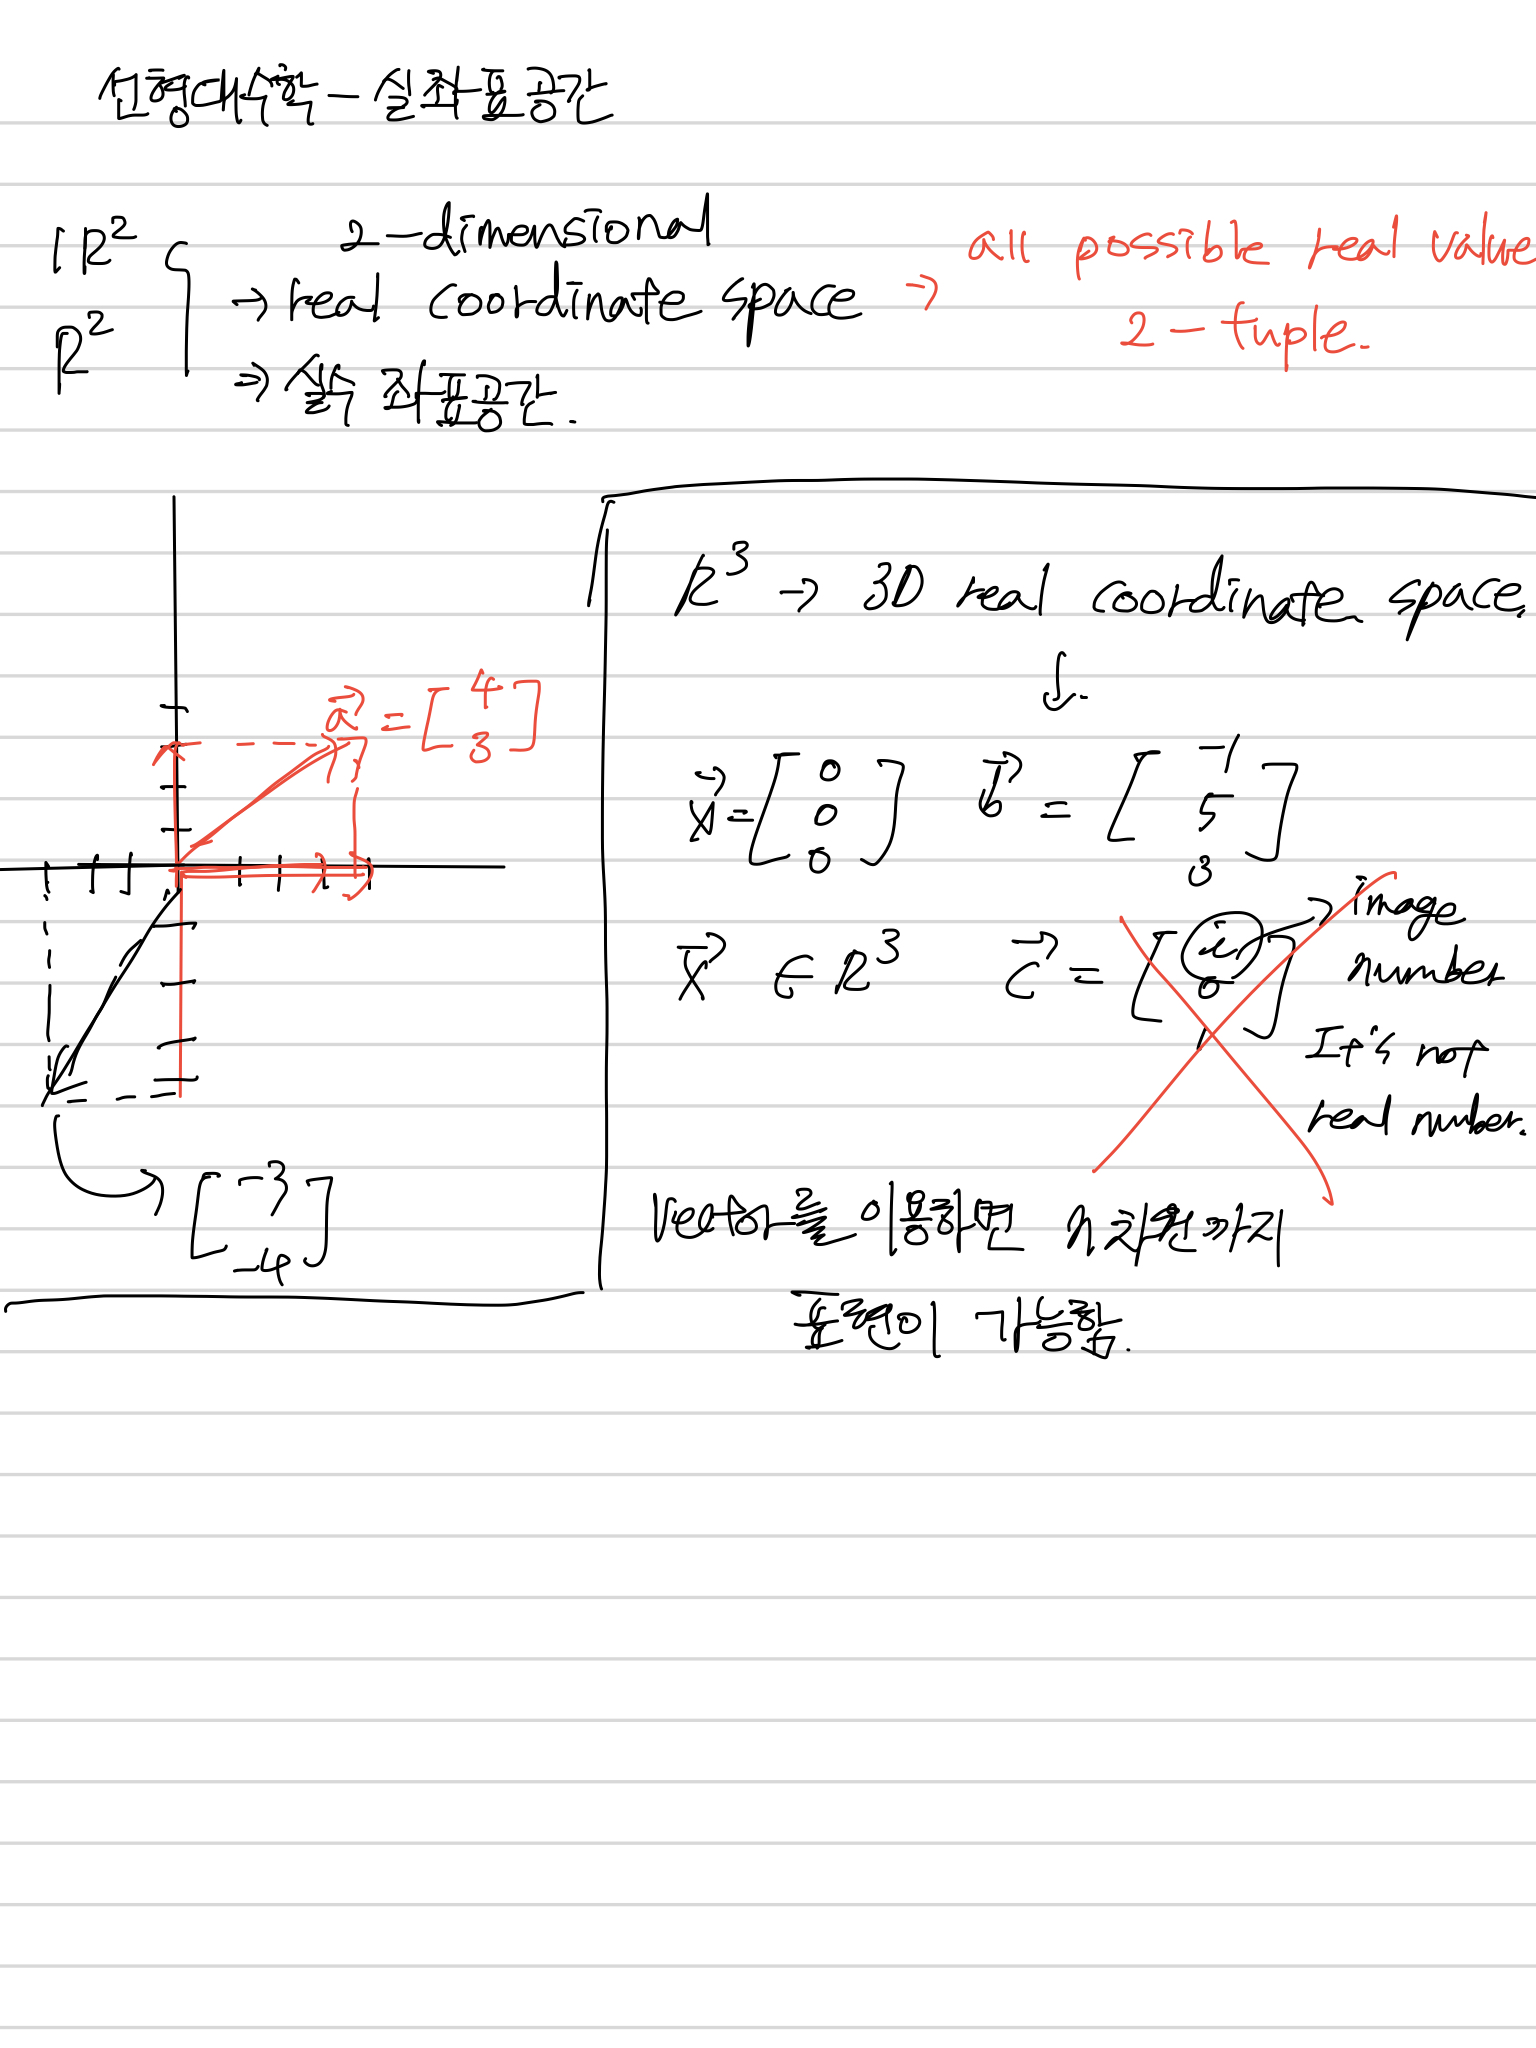 선형대수학 - 실좌표공간
ℝ² 2-dimensional
→ real coordinate space → all possible real value
R² 2-tuple.
⇒ 실수 좌표공간.
R³ → 3D real coordinate space.
↓.
a⃗ = [4
3]
x⃗ = [0
0
0]
b⃗ = [-1
5
3]
x⃗ ∈ R³
c⃗ = [i
0
1]
→ image
number
It's not
real number.
[-3
-4]
Vector를 이용하면 n차원까지
표현이 가능함.